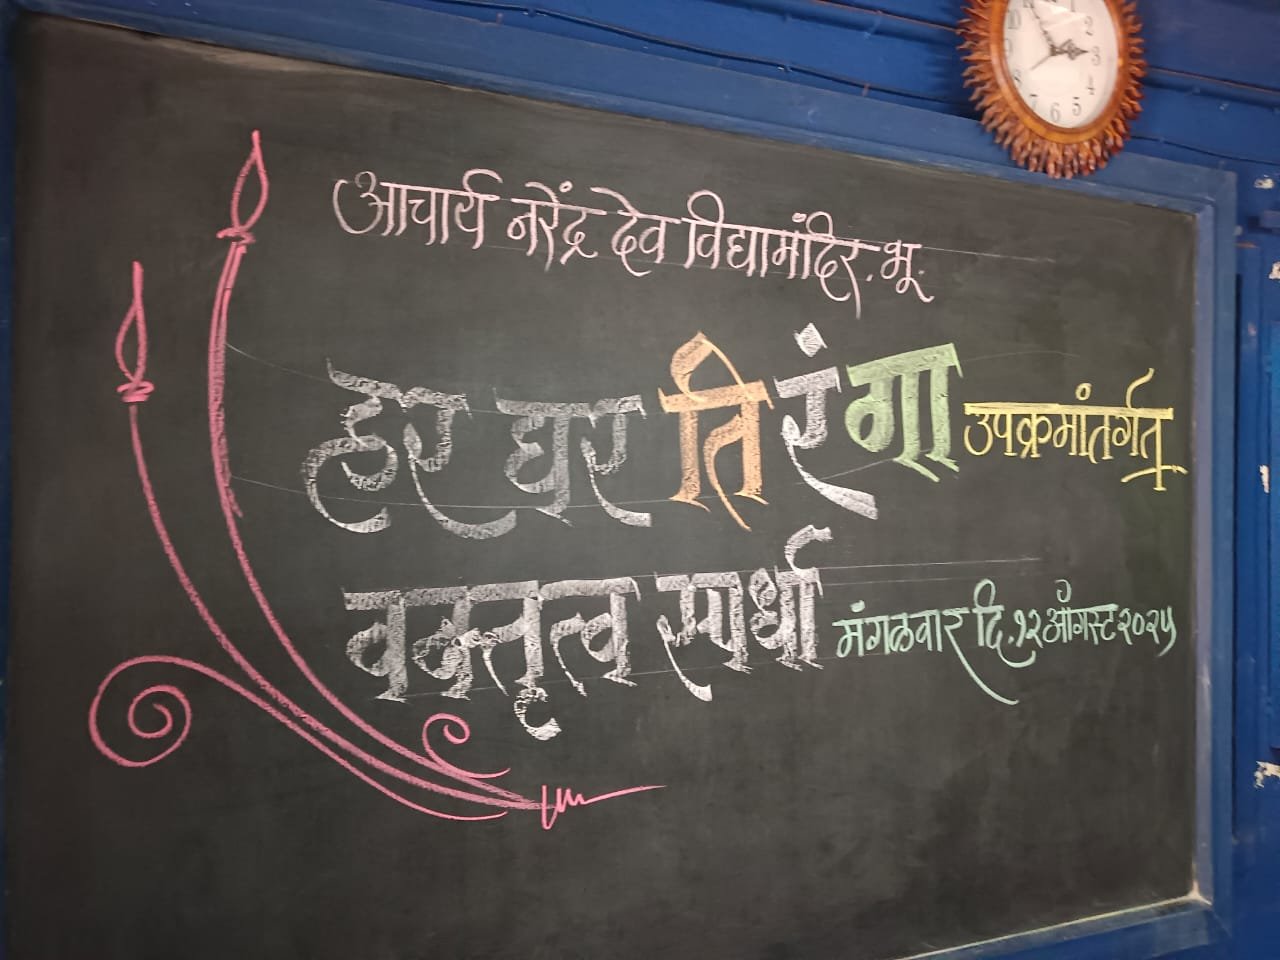 आचार्य नरेंद्र देव विद्यामंदिर. भू.
हर घर तिरंगा उपक्रमांतर्गत
वक्तृत्व स्पर्धा मंगळवार दि. १२ ऑगस्ट २०२५
10 1 2 3 4 5 6 7 8 9